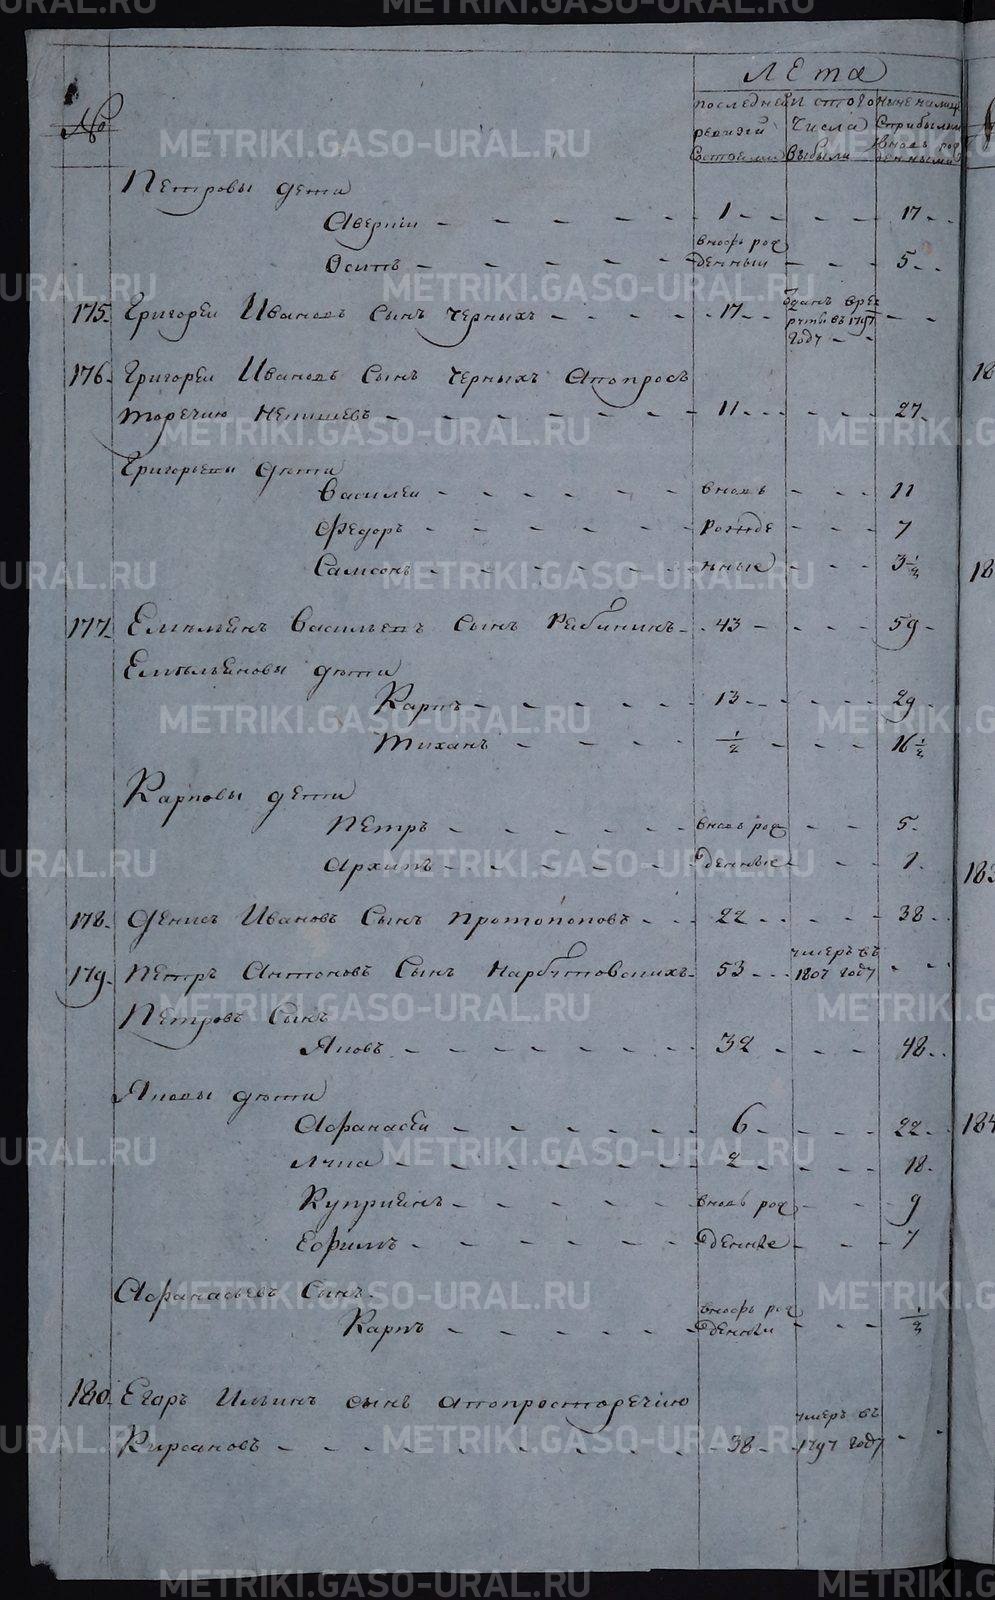 №
Лета
последней ревизей состояли
Из того числа выбыли
ныне налицо с прибылыми и вновь рожденными
Петровы дети
Аверкии 1 17
Осипъ вновь рожденныи 5
175. Григореи Ивановъ Сынъ Черныхъ 17 Зданъ врекруты въ 1797 году
176. Григореи Ивановъ Сынъ Черныхъ Апопрос
торечию 11 27
Григорьевы дѣти
Василеи вновь 11
Федоръ рожде 7
Самсонъ нные 3 1/2
177. Емельянъ Васильевъ Сынъ Рябининъ 43 59
Емельяновы дѣти
Карпъ 13 29
Тиханъ 1/2 16 1/2
Карповы дети
Петръ вновь рож 5.
Архипъ денные 1.
178. Денисъ Ивановъ Сынъ Протопоповъ 22 38
179. Петръ Антоновъ Сынъ Нарбутовскихъ 53 умеръ въ 1807 году
Петровъ Сынъ
Яковъ 32 48
Яковы дѣти
Афанасеи 6 22
Лука 2 18
Куприянъ вновь рож 9
Ефимъ денные 7
Афанасьевъ Сынъ
Карпъ вновь рожденныи 1/2
180. Егаръ Ильинъ сынъ апопросторечию
Кирсановъ 38 умеръ въ 1797 году
METRIKI.GASO-URAL.RU